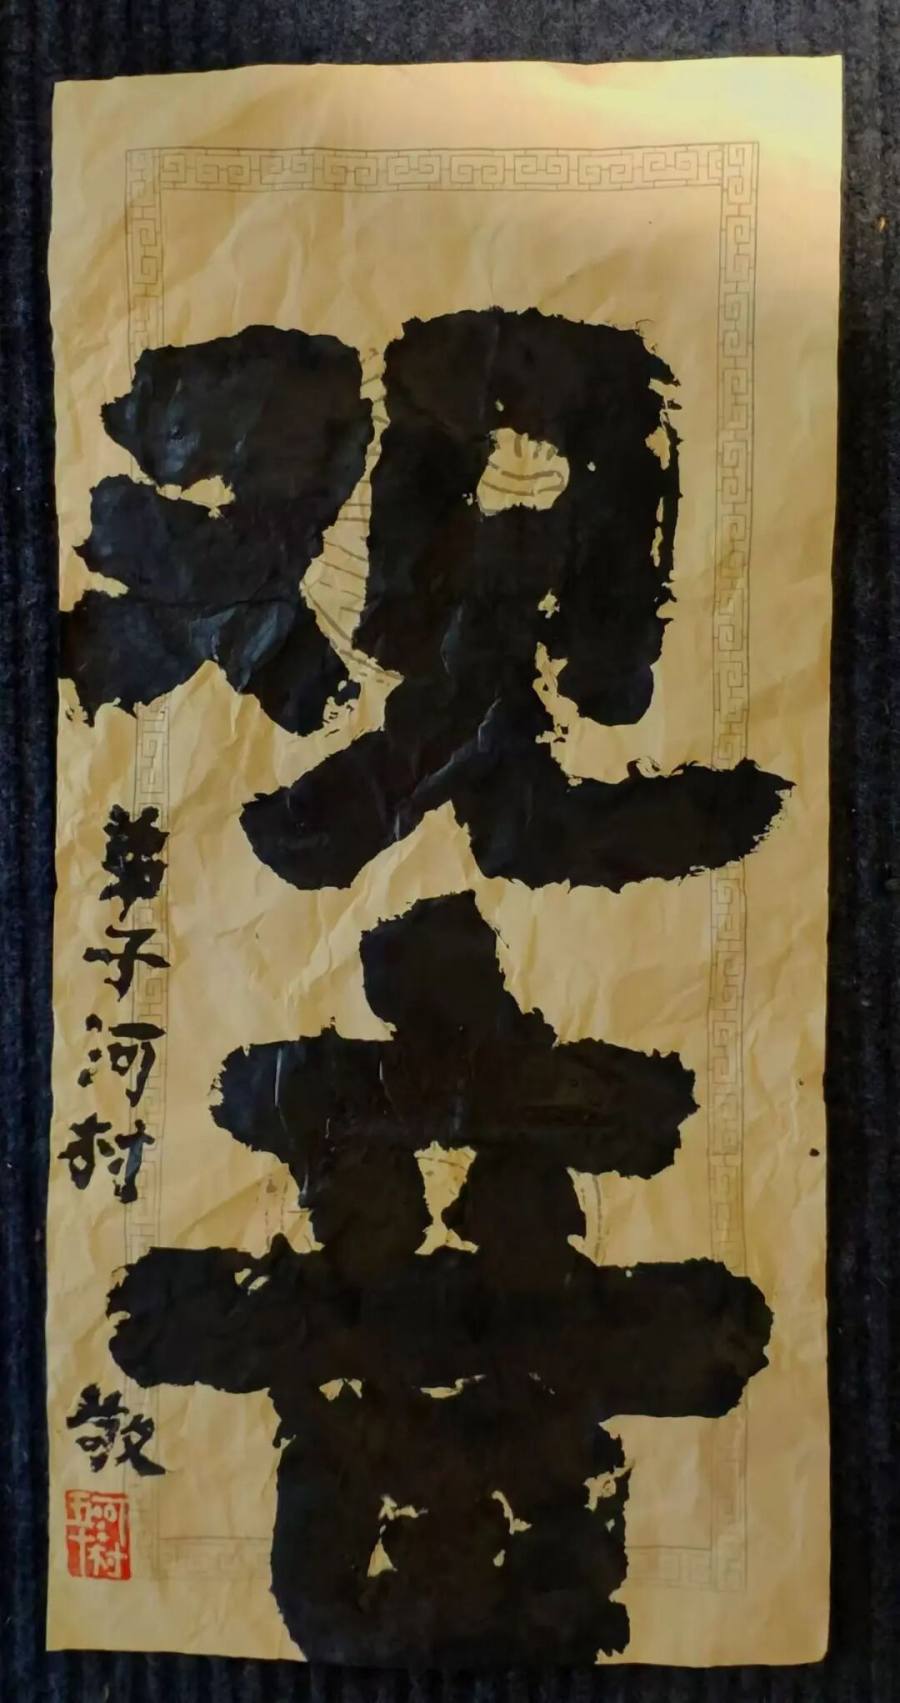 观音
弟子河村 敬
河村
五十